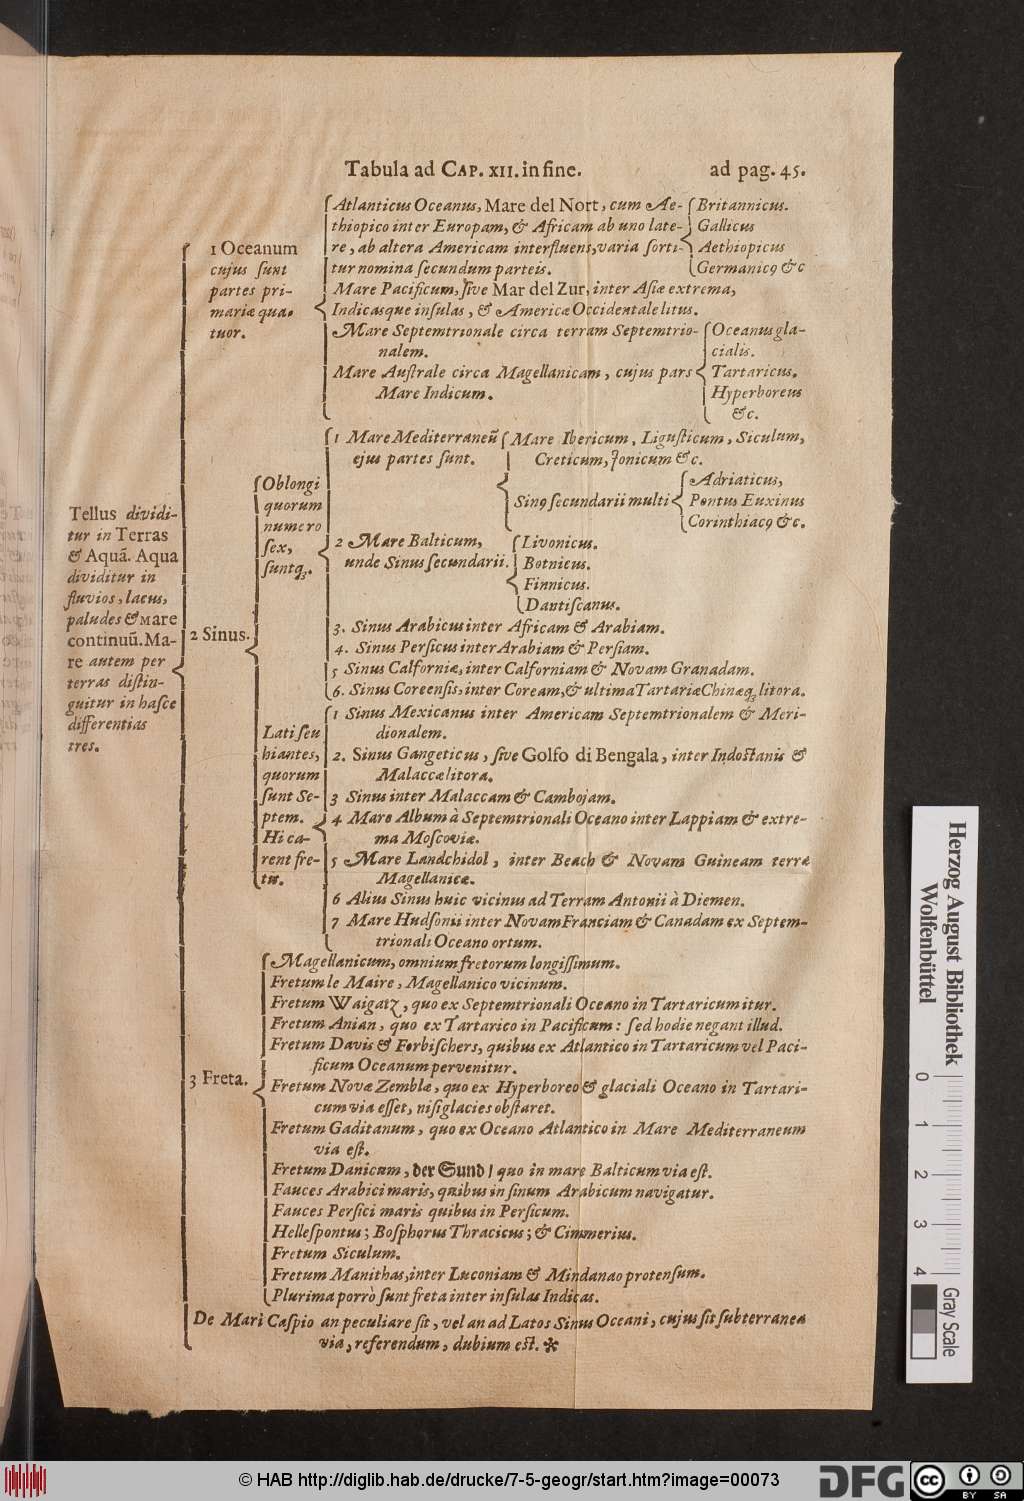 Tabula ad CAP. XII. in fine. ad pag. 45.
Tellus dividi-
tur in Terras
& Aquã. Aqua
dividitur in
fluvios, lacus,
paludes & mare
continuũ. Ma-
re autem per
terras distin-
guitur in hasce
differentias
tres.
1 Oceanum
cujus sunt
partes pri-
mariæ qua-
tuor.
Atlanticus Oceanus, Mare del Nort, cum Ae-
thiopico inter Europam, & Africam ab uno late-
re, ab altera Americam interfluens, varia sorti-
tur nomina secundum parteis.
Britannicus.
Gallicus
Aethiopicus
Germanicꝯ &c
Mare Pacificum, sive Mar del Zur, inter Asiæ extrema,
Indicasque insulas, & Americæ Occidentale litus.
Mare Septemtrionale circa terram Septemtrio-
nalem.
Mare Australe circa Magellanicam, cujus pars
Mare Indicum.
Oceanus gla-
cialis.
Tartaricus.
Hyperboreus
&c.
2 Sinus.
Oblongi
quorum
numero
sex,
suntq;.
1 Mare Mediterraneũ
ejus partes sunt.
Mare Ibericum, Ligusticum, Siculum,
Creticum, Jonicum &c.
Sinꝯ secundarii multi
Adriaticus,
Pontus Euxinus
Corinthiacꝯ &c.
2 Mare Balticum,
unde Sinus secundarii.
Livonicus.
Botnicus.
Finnicus.
Dantiscanus.
3. Sinus Arabicus inter Africam & Arabiam.
4. Sinus Persicus inter Arabiam & Persiam.
5 Sinus Calforniæ, inter Calforniam & Novam Granadam.
6. Sinus Coreensis, inter Coream, & ultima Tartariæ Chinæq; litora.
Lati seu
hiantes,
quorum
sunt Se-
ptem.
Hi ca-
rent fre-
tu.
1 Sinus Mexicanus inter Americam Septemtrionalem & Meri-
dionalem.
2. Sinus Gangeticus, sive Golfo di Bengala, inter Indostanis &
Malaccæ litora.
3 Sinus inter Malaccam & Cambojam.
4 Mare Album à Septemtrionali Oceano inter Lappiam & extre-
ma Moscoviæ.
5 Mare Landchidol, inter Beach & Novam Guineam terræ
Magellanicæ.
6 Alius Sinus huic vicinus ad Terram Antonii à Diemen.
7 Mare Hudsonii inter Novam Franciam & Canadam ex Septem-
trionali Oceano ortum.
3 Freta.
Magellanicum, omnium fretorum longissimum.
Fretum le Maire, Magellanico vicinum.
Fretum Waigatz, quo ex Septemtrionali Oceano in Tartaricum itur.
Fretum Anian, quo ex Tartarico in Pacificum: sed hodie negant illud.
Fretum Davis & Forbischers, quibus ex Atlantico in Tartaricum vel Paci-
ficum Oceanum pervenitur.
Fretum Novæ Zemblæ, quo ex Hyperboreo & glaciali Oceano in Tartari-
cum via esset, nisi glacies obstaret.
Fretum Gaditanum, quo ex Oceano Atlantico in Mare Mediterraneum
via est.
Fretum Danicum, der Sund / quo in mare Balticum via est.
Fauces Arabici maris, quibus in sinum Arabicum navigatur.
Fauces Persici maris quibus in Persicum.
Hellespontus; Bosphorus Thracicus; & Cimmerius.
Fretum Siculum.
Fretum Manithas, inter Luconiam & Mindanao protensum.
Plurima porrò sunt freta inter insulas Indicas.
De Mari Caspio an peculiare sit, vel an ad Latos Sinus Oceani, cujus sit subterranea
via, referendum, dubium est. *
Herzog August Bibliothek
Wolfenbüttel
0 1 2 3 4
Gray Scale
© HAB http://diglib.hab.de/drucke/7-5-geogr/start.htm?image=00073
DFG
cc BY SA